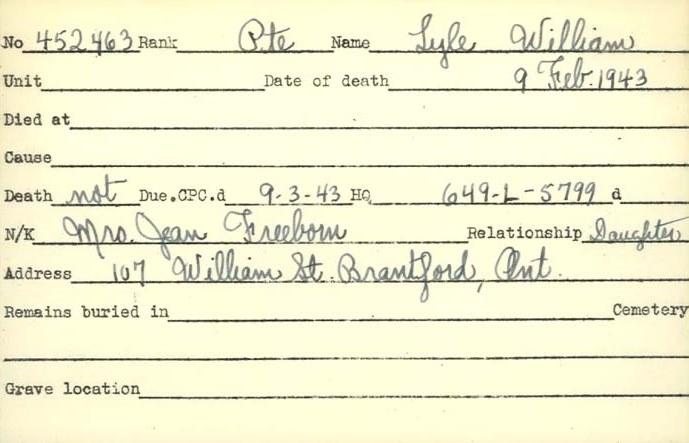 No 452463 Rank Pte Name Lyle William
Unit Date of death 9 Feb. 1943
Died at
Cause
Death not Due.CPC.d 9-3-43 HQ 649-L-5799 d
N/K Mrs. Jean Freeborn Relationship Daughter
Address 107 William St. Brantford, Ont.
Remains buried in Cemetery
Grave location